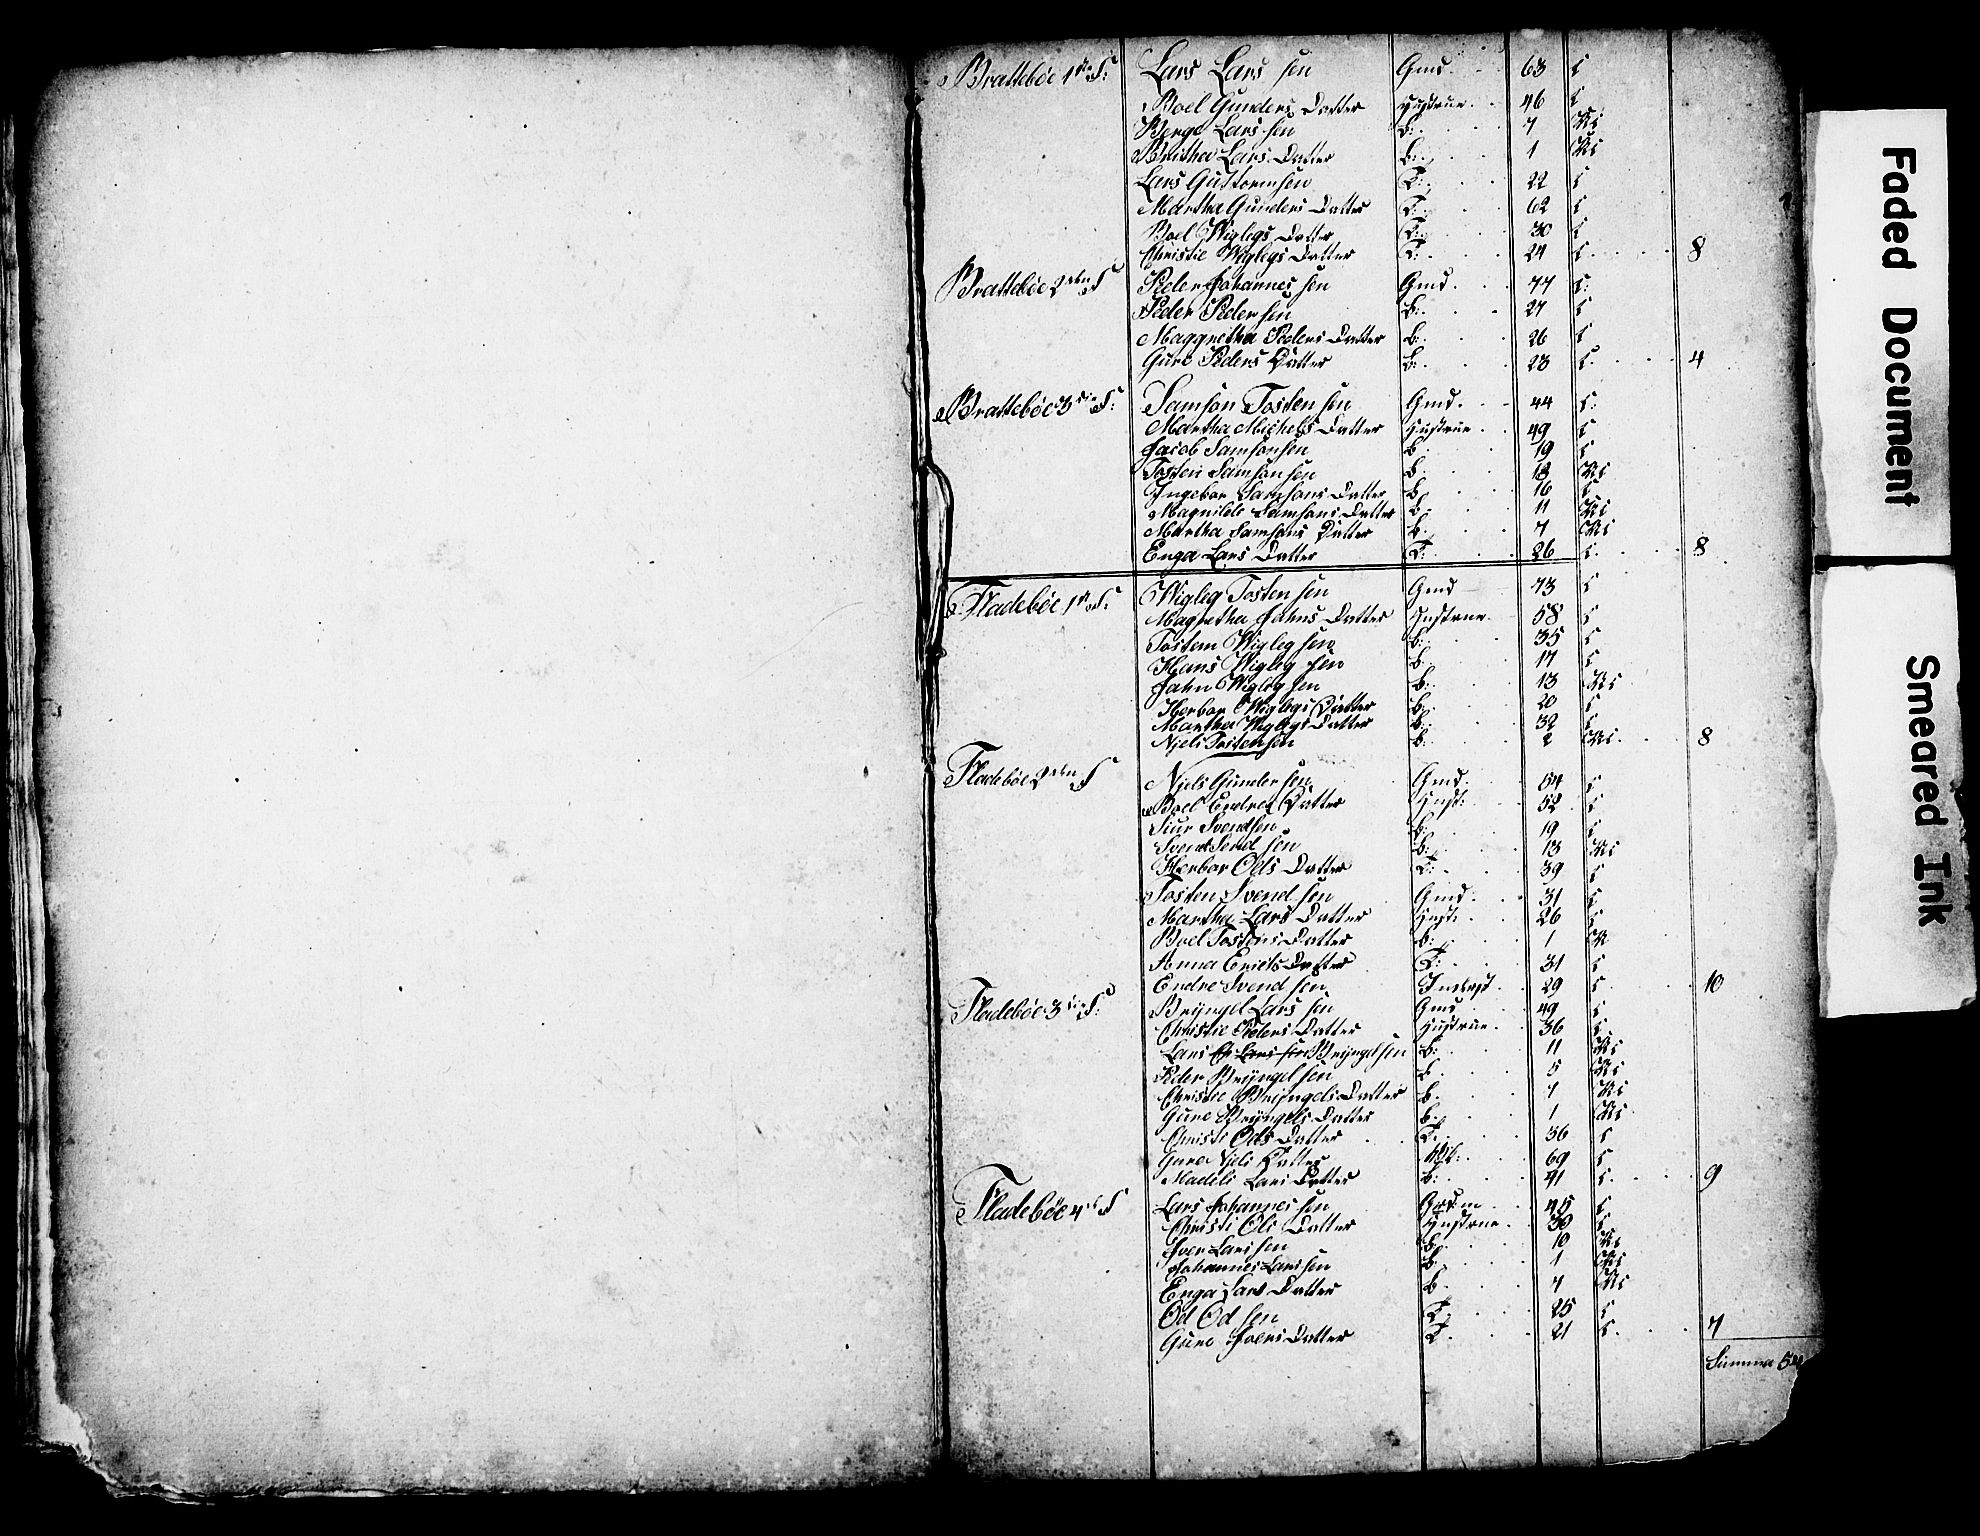 Brattebøe 1ste F: Lars Larssen Gmd. 63 C
Boel Gunders Datter Hustrue 46 C
Berge Larssen b: 7 Uc
Britha Lars Datter b: 1 Uc
Lars Guttormsen T: 22 C
Martha Gunders Datter T: 62 C
Boel Wiglegs Datter T: 30 C
Christie Wiglegs Datter T: 24 C 8
Brattebøe 2den F Peder Johannessen Gmd. 77 C:
Peder Pedersen b: 27 C
Maggretha Peders Datter b: 26 C
Guro Peders Datter b: 23 C 4
Brattebøe 3die F: Samson Tostensen Gmd. 44 C:
Martha Michels Datter Hustrue 49 C
Jacob Samsonsen b: 19 C
Tosten Samsonsen b: 13 Uc
Ingebor Samsons Datter b: 16 C
Magnilde Samsons Datter b: 11 Uc
Martha Samsons Datter b: 7 Uc
Enga Lars Datter T: 26 C. 8
Fladebøe 1ste F: Wigleg Tostensen Gmd 73 C
Magretha Johns Datter Hustrue 58 C
Tosten Wiglegsen b: 35 C
Hans Wiglegsen b: 17 C
John Wiglegsen b: 13 Uc
Herbor Wiglegs Datter b: 20 C
Martha Wiglegs Datter b: 32 C
Njels Tostensen b: 2 Uc. 8
Fladebøe 2den F Njels Gundersen Gmd. 54 C
Boel Endres Datter Hust: 52 C
Siur Svendsen b: 19 C
Svend Svendsen b: 13 Uc
Herbor Ods Datter T: 39 C
Tosten Svendsen Gmd. 31 C
Martha Lars Datter Hust: 26 C
Boel Tostens Datter b: 1 U
Anna Eriks Datter T: 31 C
Endre Svendsen Inderst 29 C 10
Fladebøe 3die F: Bryngel Larssen Gmd 49 C
Christie Peders Datter Hustrue 36 C
Lars Bryngelsen b: 11 Uc
Peder Bryngelsen b. 5 Uc
Christie Bryngels Datter b. 7 Uc
Guro Bryngels Datter b: 1 Uc
Christi Ods Datter T. 36 C
Guro Njels Datter 69 C
Madeli Lars Datter b: 41 C. 9
Fladebøe 4de F Lars Johannessen 45 C
Christi Ols Datter Hustrue 30 C
Iver Larssen b. 10 Uc
Johannes Larssen b. 1 Uc
Enga Lars Datter b 7 Uc
Od Odsen T. 25 C
Guro Ivers Datter T. 21 C. 7
Summa 54
Faded Document
Smeared Ink